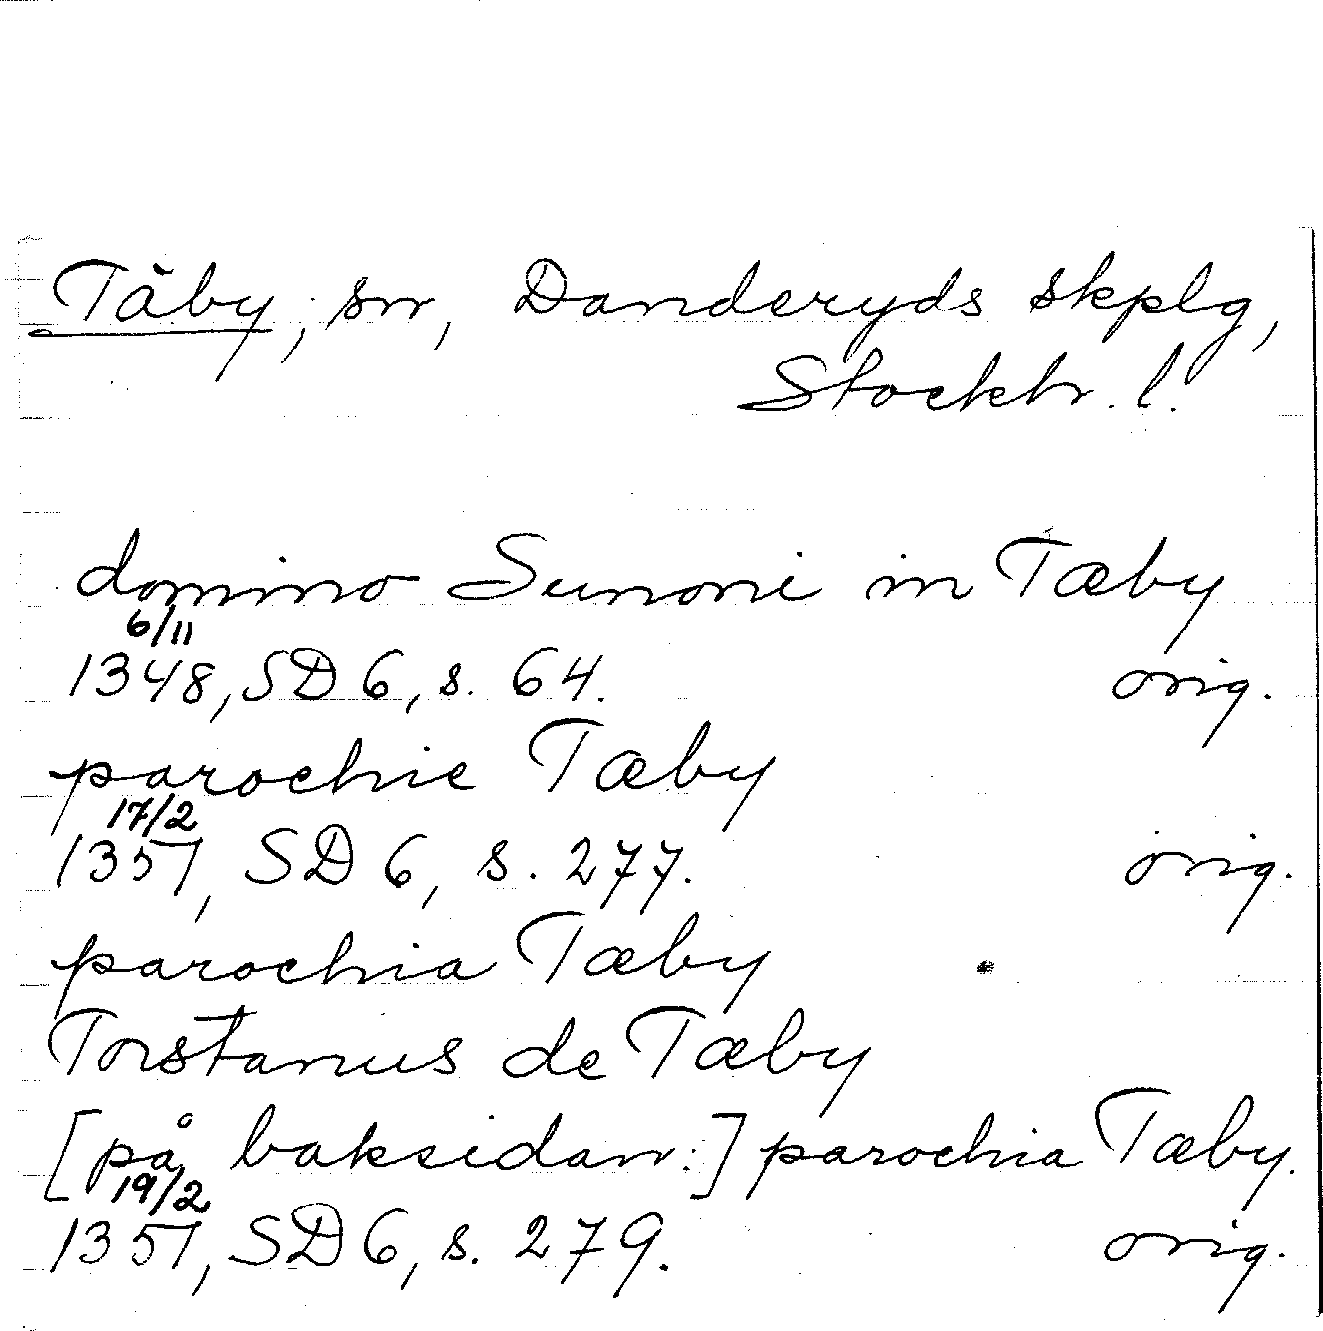 Täby, sn, Danderyds skplg,
Stockh. l.
domino Sunoni in Tæby
6/11
1348, SD 6, s. 64. orig.
parochie Tæby
17/2
1351, SD 6, s. 277. orig.
parochia Tæby
Torstanus de Tæby
[på baksidan:] parochia Tæby.
19/2
1351, SD 6, s. 279. orig.